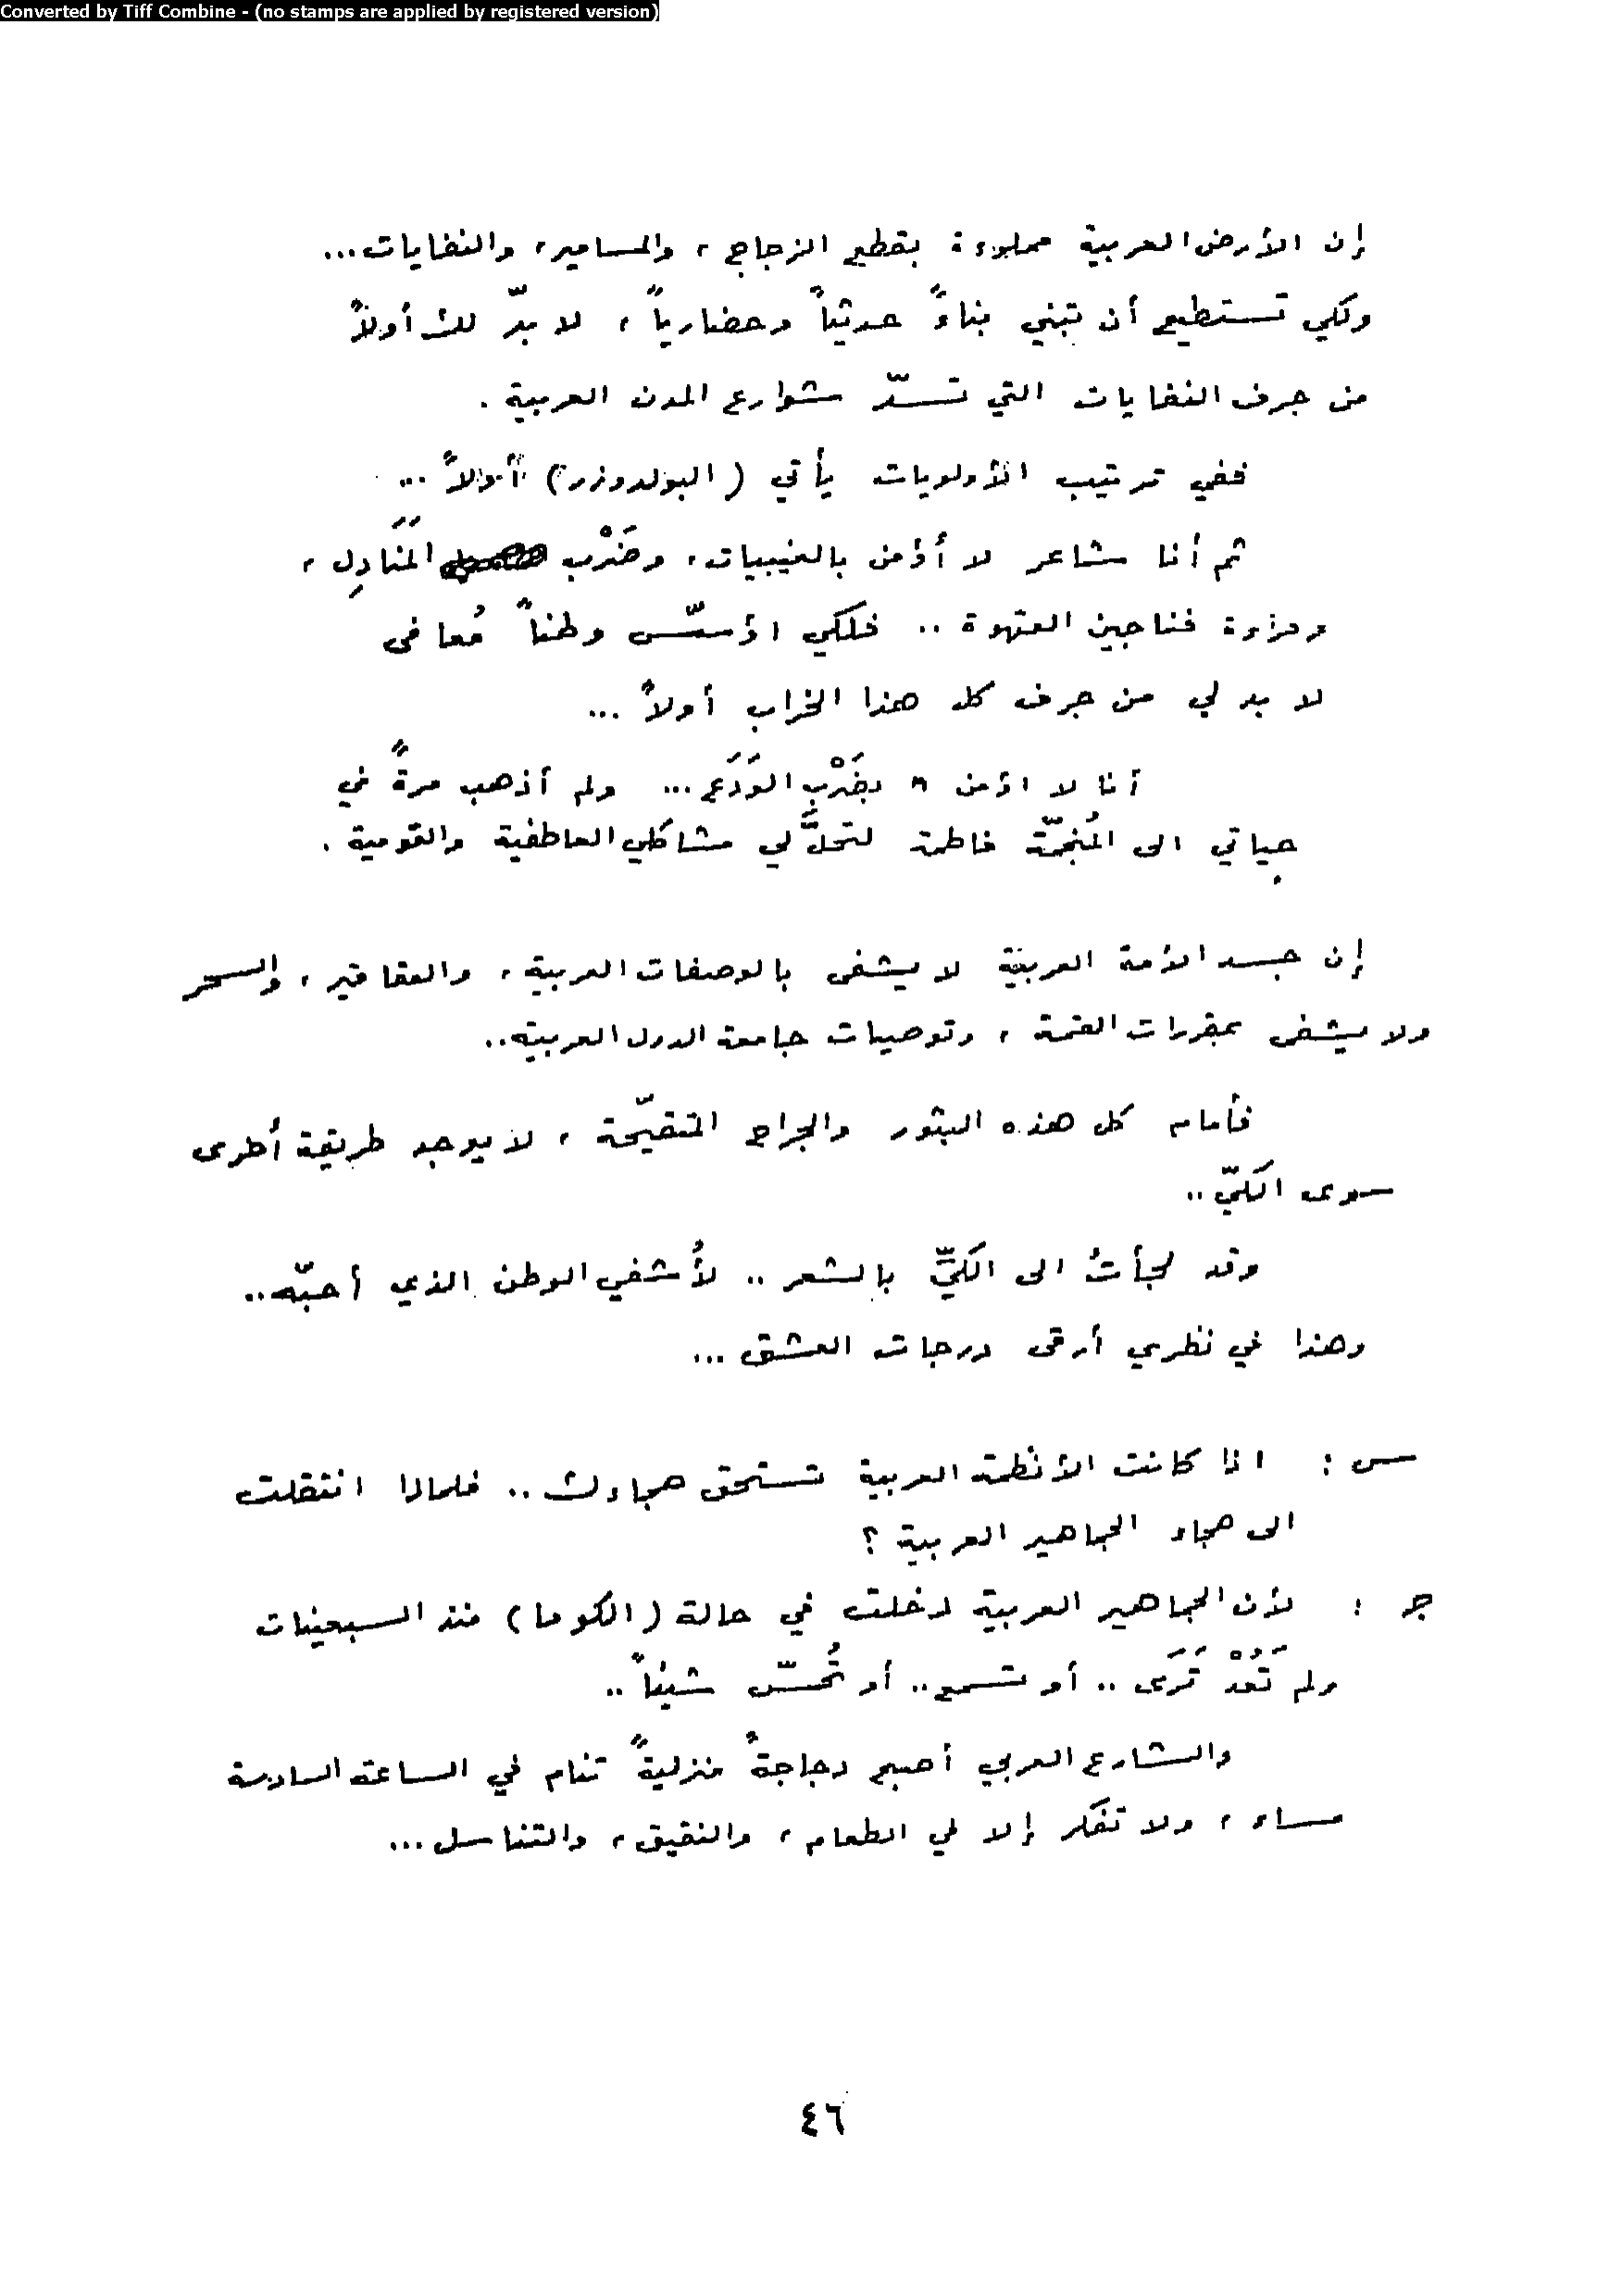 Converted by Tiff Combine - (no stamps are applied by registered version)
إن الأرض العربية مملوءة بقطع الزجاج ، والمسامير ، والنفايات ...
ولكي تستطيع أن تبني بناءً حديثاً وحضارياً ، لا بدّ لك أولاً
من جرف النفايات التي تسدّ شوارع المدن العربية .
ففي ترتيب الأولويات يأتي ( البولدوزر ) أولاً ...
ثم أنا شاعر لا أؤمن بالغيبيات ، وضَرْب المَنَادِل ،
وقراءة فناجين القهوة .. فلكي اؤسّس وطناً مُعافى
لا بد لي من جرف كل هذا الخراب أولاً ...
أنا لا اؤمن بضَرْبِ الوَدَع ... ولم أذهب مرةً في
حياتي الى المُنجّمة فاطمة لتحلَّ لي مشاكلي العاطفية والقومية .
إن جسد الأمة العربية لا يشفى بالوصفات العربية ، والعقاقير ، والسحر
ولا يشفى بمقررات القمة ، وتوصيات جامعة الدول العربية ..
فأمام كل هذه البثور والجراح المتقيّحة ، لا يوجد طريقة أخرى
سوى الكَيّ ..
وقد لجأتُ الى الكَيِّ بالشعر .. لأُشفي الوطن الذي أحبّه ..
وهذا في نظري أرقى درجات العشق ...
س : اذا كانت الأنظمة العربية تستحق هجاءك .. فلماذا انتقلت
الى هجاء الجماهير العربية ؟
ج : لأن الجماهير العربية دخلت في حالة ( الكوما ) منذ السبعينات
ولم تَعُدْ تَرَى .. أو تسمع .. أو تُحسّ شيئاً ..
والشارع العربي أصبح دجاجةً منزليةً تنام في الساعة السادسة
مساء ، ولا تفكر إلا في الطعام ، والنقيق ، والتناسل ...
٤٦